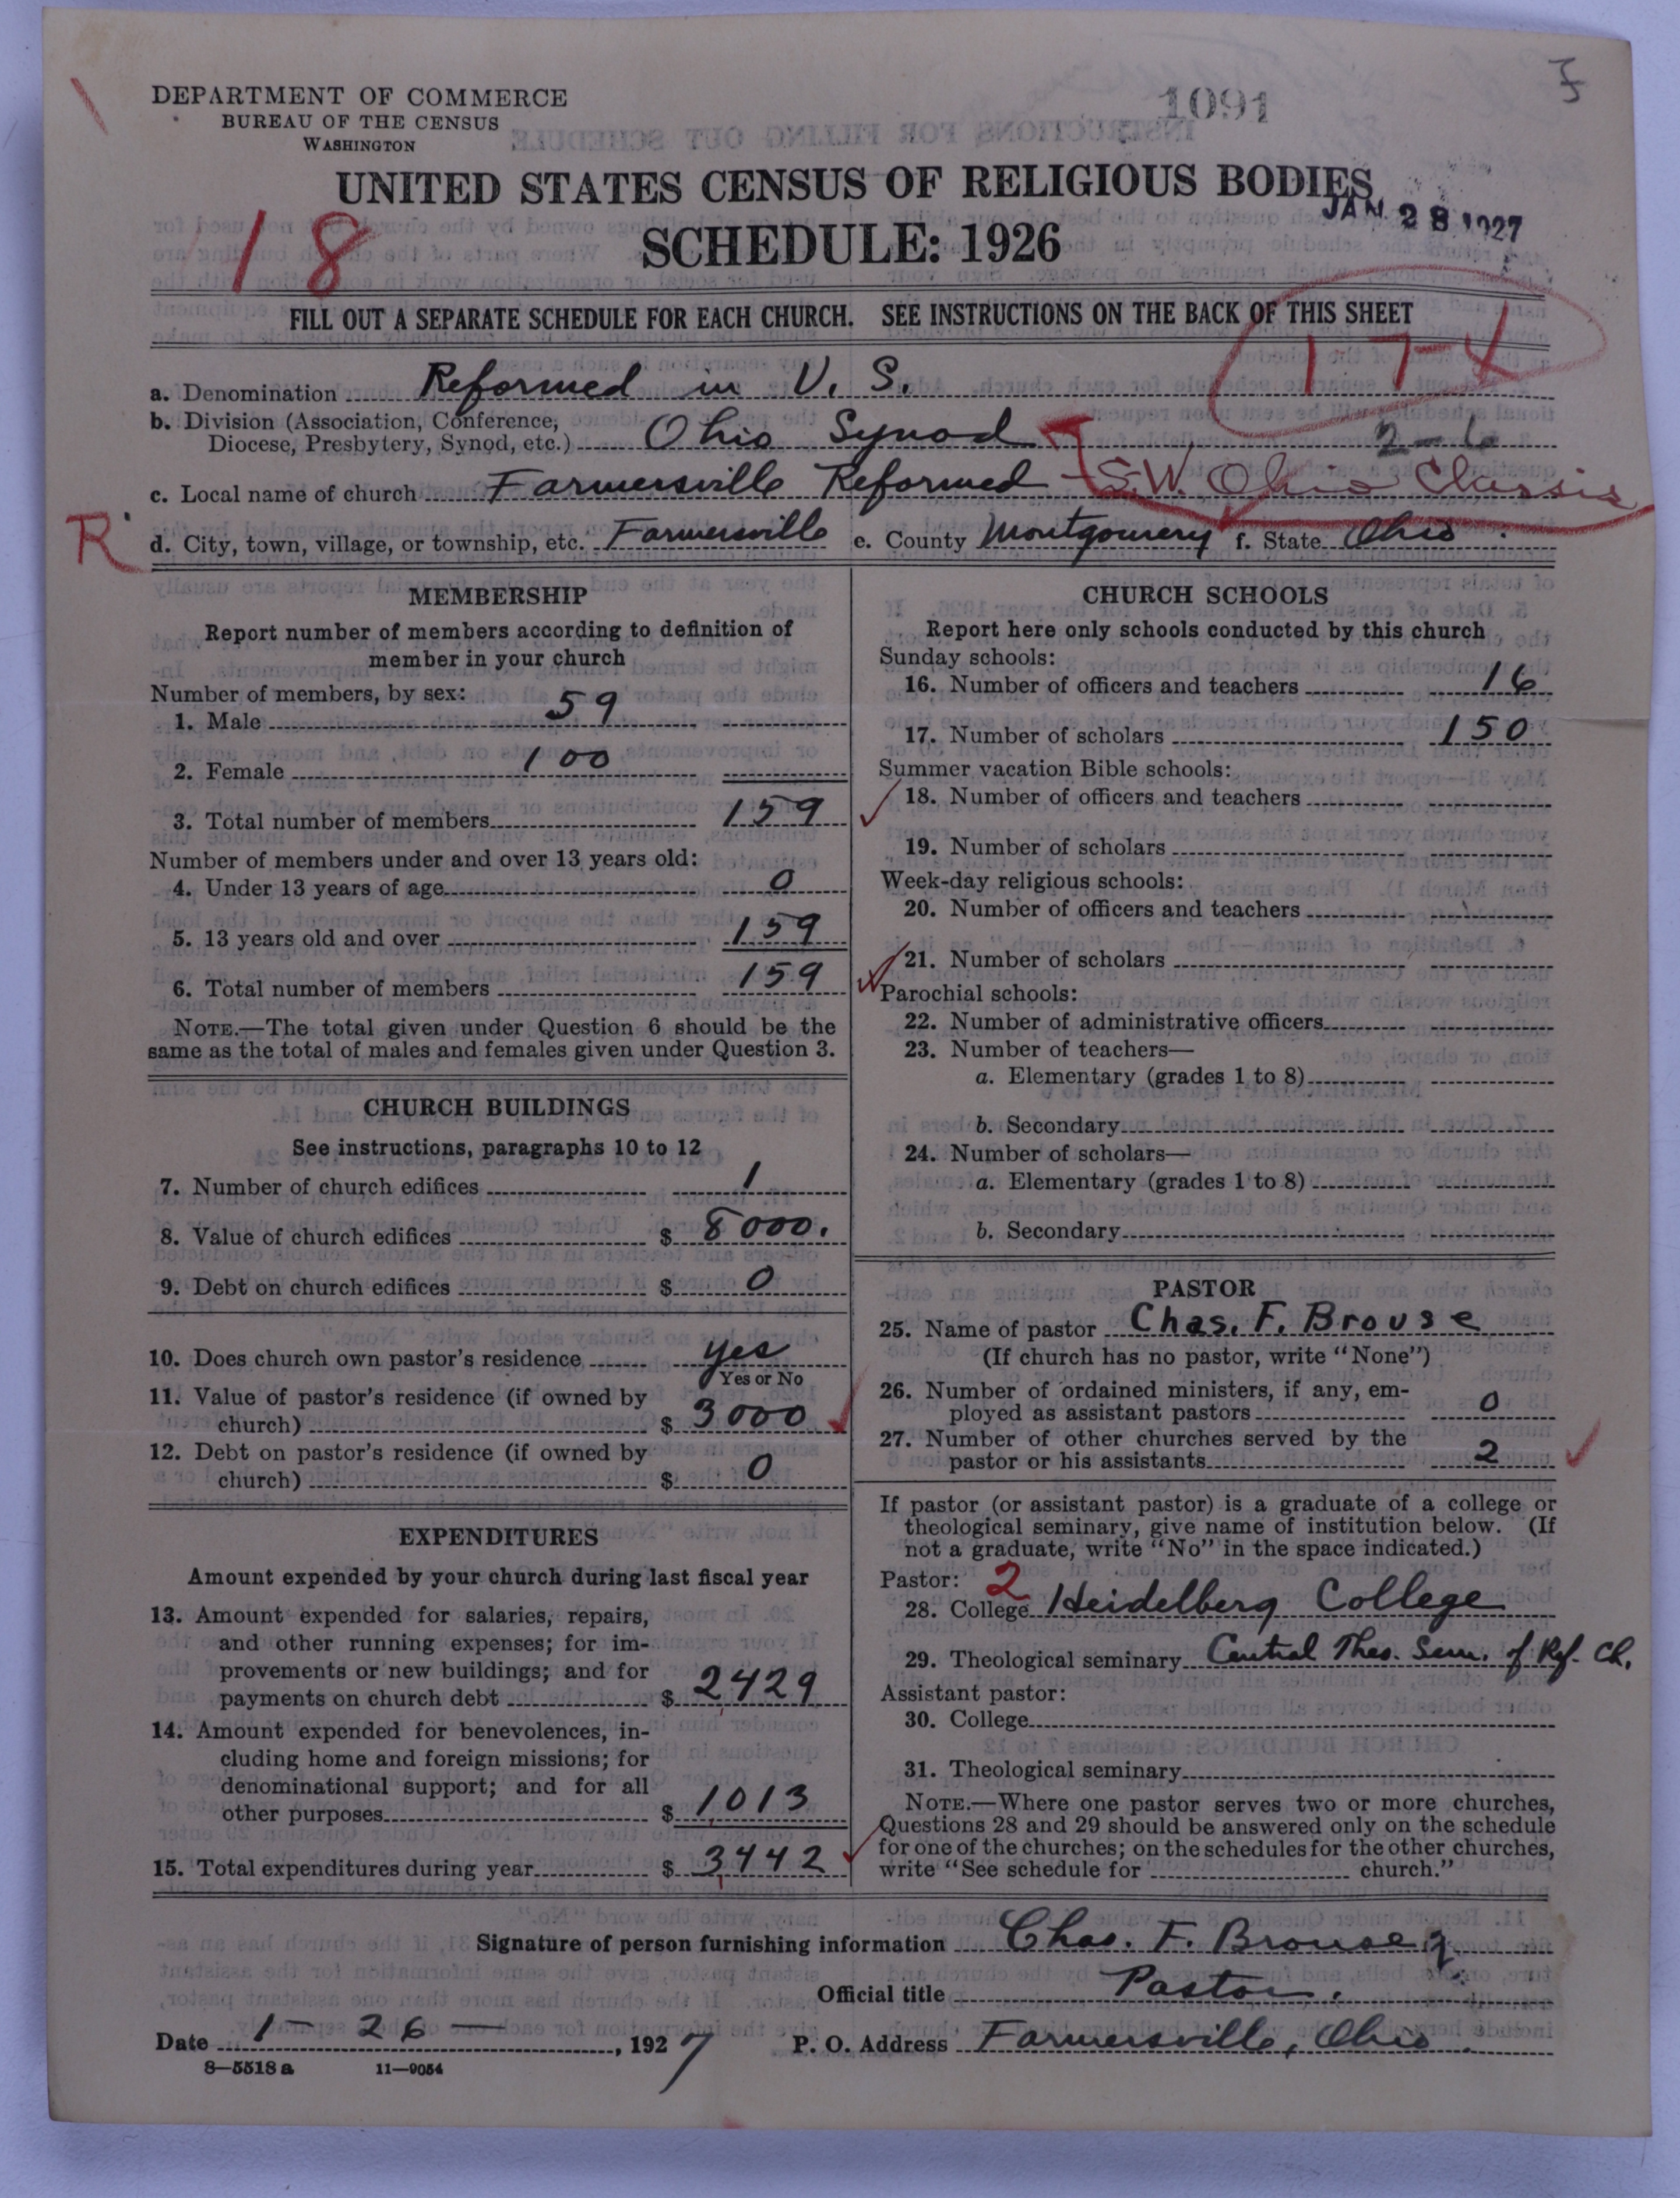 DEPARTMENT OF COMMERCE
BUREAU OF THE CENSUS
WASHINGTON
1091
UNITED STATES CENSUS OF RELIGIOUS BODIES
JAN. 28 1927
SCHEDULE: 1926
18
FILL OUT A SEPARATE SCHEDULE FOR EACH CHURCH. SEE INSTRUCTIONS ON THE BACK OF THIS SHEET
a. Denomination Reformed in U. S.
b. Division (Association, Conference,
Diocese, Presbytery, Synod, etc.) Ohio Synod
c. Local name of church Farmersville Reformed S.W. Ohio Classis
R
d. City, town, village, or township, etc. Farmersville e. County Montgomery f. State Ohio
MEMBERSHIP
Report number of members according to definition of
member in your church
Number of members, by sex:
1. Male 59
2. Female 100
3. Total number of members 159
Number of members under and over 13 years old:
4. Under 13 years of age 0
5. 13 years old and over 159
6. Total number of members 159
NOTE.—The total given under Question 6 should be the
same as the total of males and females given under Question 3.
CHURCH BUILDINGS
See instructions, paragraphs 10 to 12
7. Number of church edifices 1
8. Value of church edifices $ 8000.
9. Debt on church edifices $ 0
10. Does church own pastor's residence yes
Yes or No
11. Value of pastor's residence (if owned by
church) $ 3000
12. Debt on pastor's residence (if owned by
church) $ 0
EXPENDITURES
Amount expended by your church during last fiscal year
13. Amount expended for salaries, repairs,
and other running expenses; for im-
provements or new buildings; and for
payments on church debt $ 2429
14. Amount expended for benevolences, in-
cluding home and foreign missions; for
denominational support; and for all
other purposes $ 1013
15. Total expenditures during year $ 3442
CHURCH SCHOOLS
Report here only schools conducted by this church
Sunday schools:
16. Number of officers and teachers 16
17. Number of scholars 150
Summer vacation Bible schools:
18. Number of officers and teachers
19. Number of scholars
Week-day religious schools:
20. Number of officers and teachers
21. Number of scholars
Parochial schools:
22. Number of administrative officers
23. Number of teachers—
a. Elementary (grades 1 to 8)
b. Secondary
24. Number of scholars—
a. Elementary (grades 1 to 8)
b. Secondary
PASTOR
25. Name of pastor Chas. F. Brouse
(If church has no pastor, write "None")
26. Number of ordained ministers, if any, em-
ployed as assistant pastors 0
27. Number of other churches served by the
pastor or his assistants 2
If pastor (or assistant pastor) is a graduate of a college or
theological seminary, give name of institution below. (If
not a graduate, write "No" in the space indicated.)
Pastor: 2
28. College Heidelberg College
29. Theological seminary Central Theo. Sem. of Ref. Ch.
Assistant pastor:
30. College
31. Theological seminary
NOTE.—Where one pastor serves two or more churches,
Questions 28 and 29 should be answered only on the schedule
for one of the churches; on the schedules for the other churches,
write "See schedule for church."
Signature of person furnishing information Chas. F. Brouse
Official title Pastor.
Date 1-26-, 1927 P. O. Address Farmersville, Ohio.
8—5518 a 11—9054